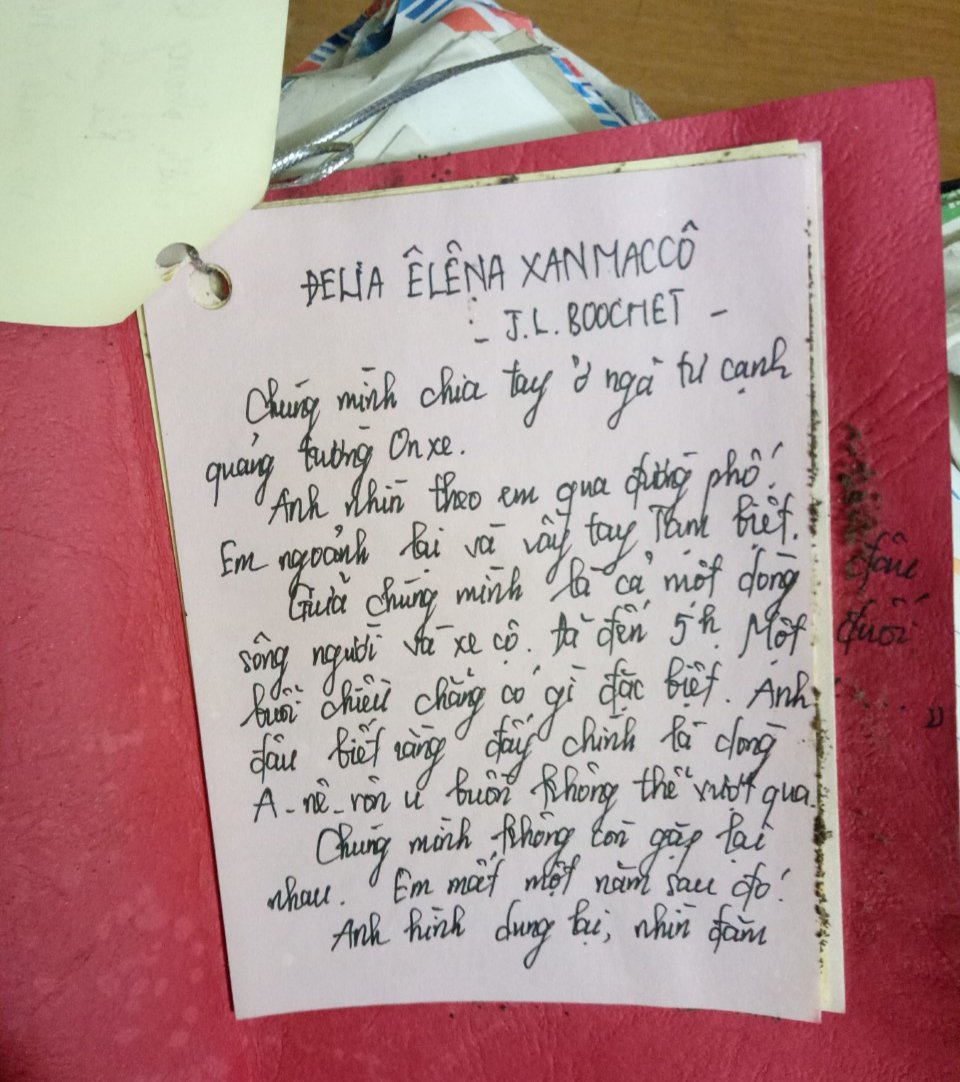 ĐELIA ÊLÊNA XANMACCÔ
- J.L. BOOCHET -
Chúng mình chia tay ở ngã tư cạnh
quảng trường Onxe.
Anh nhìn theo em qua đường phố.
Em ngoảnh lại và vẫy tay tạm biệt.
Giữa chúng mình là cả một dòng
sông người và xe cộ. đã đến 5h. Một
buổi chiều chẳng có gì đặc biệt. Anh
đâu biết rằng đấy chính là dòng
A-nê-rôn u buồn không thể vượt qua.
Chúng mình không còn gặp lại
nhau. Em mất một năm sau đó.
Anh hình dung lại, nhìn đăm
đâu
đuổi